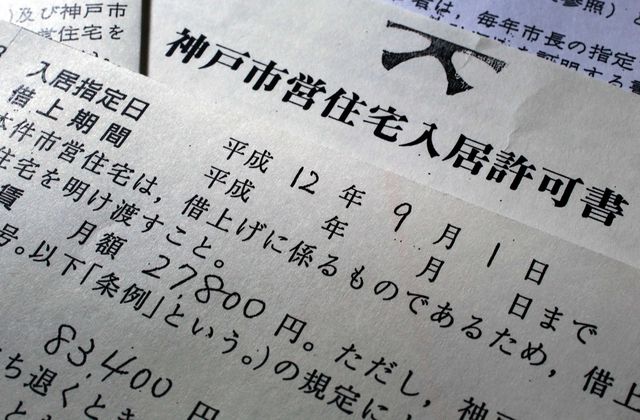 及び神戸市
営住宅を
者は、毎年市長の指定
を証明する
神戸市営住宅入居許可書
入居指定日 平成 12 年 9 月 1 日
借上期間 平成 年 月 日まで
本件市営住宅は，借上げに係るものであるため，借上
住宅を明け渡すこと。
賃 月額 27,800 円。ただし，神戸
号。以下「条例」という。）の規定に
83,400 円
ち退くとき